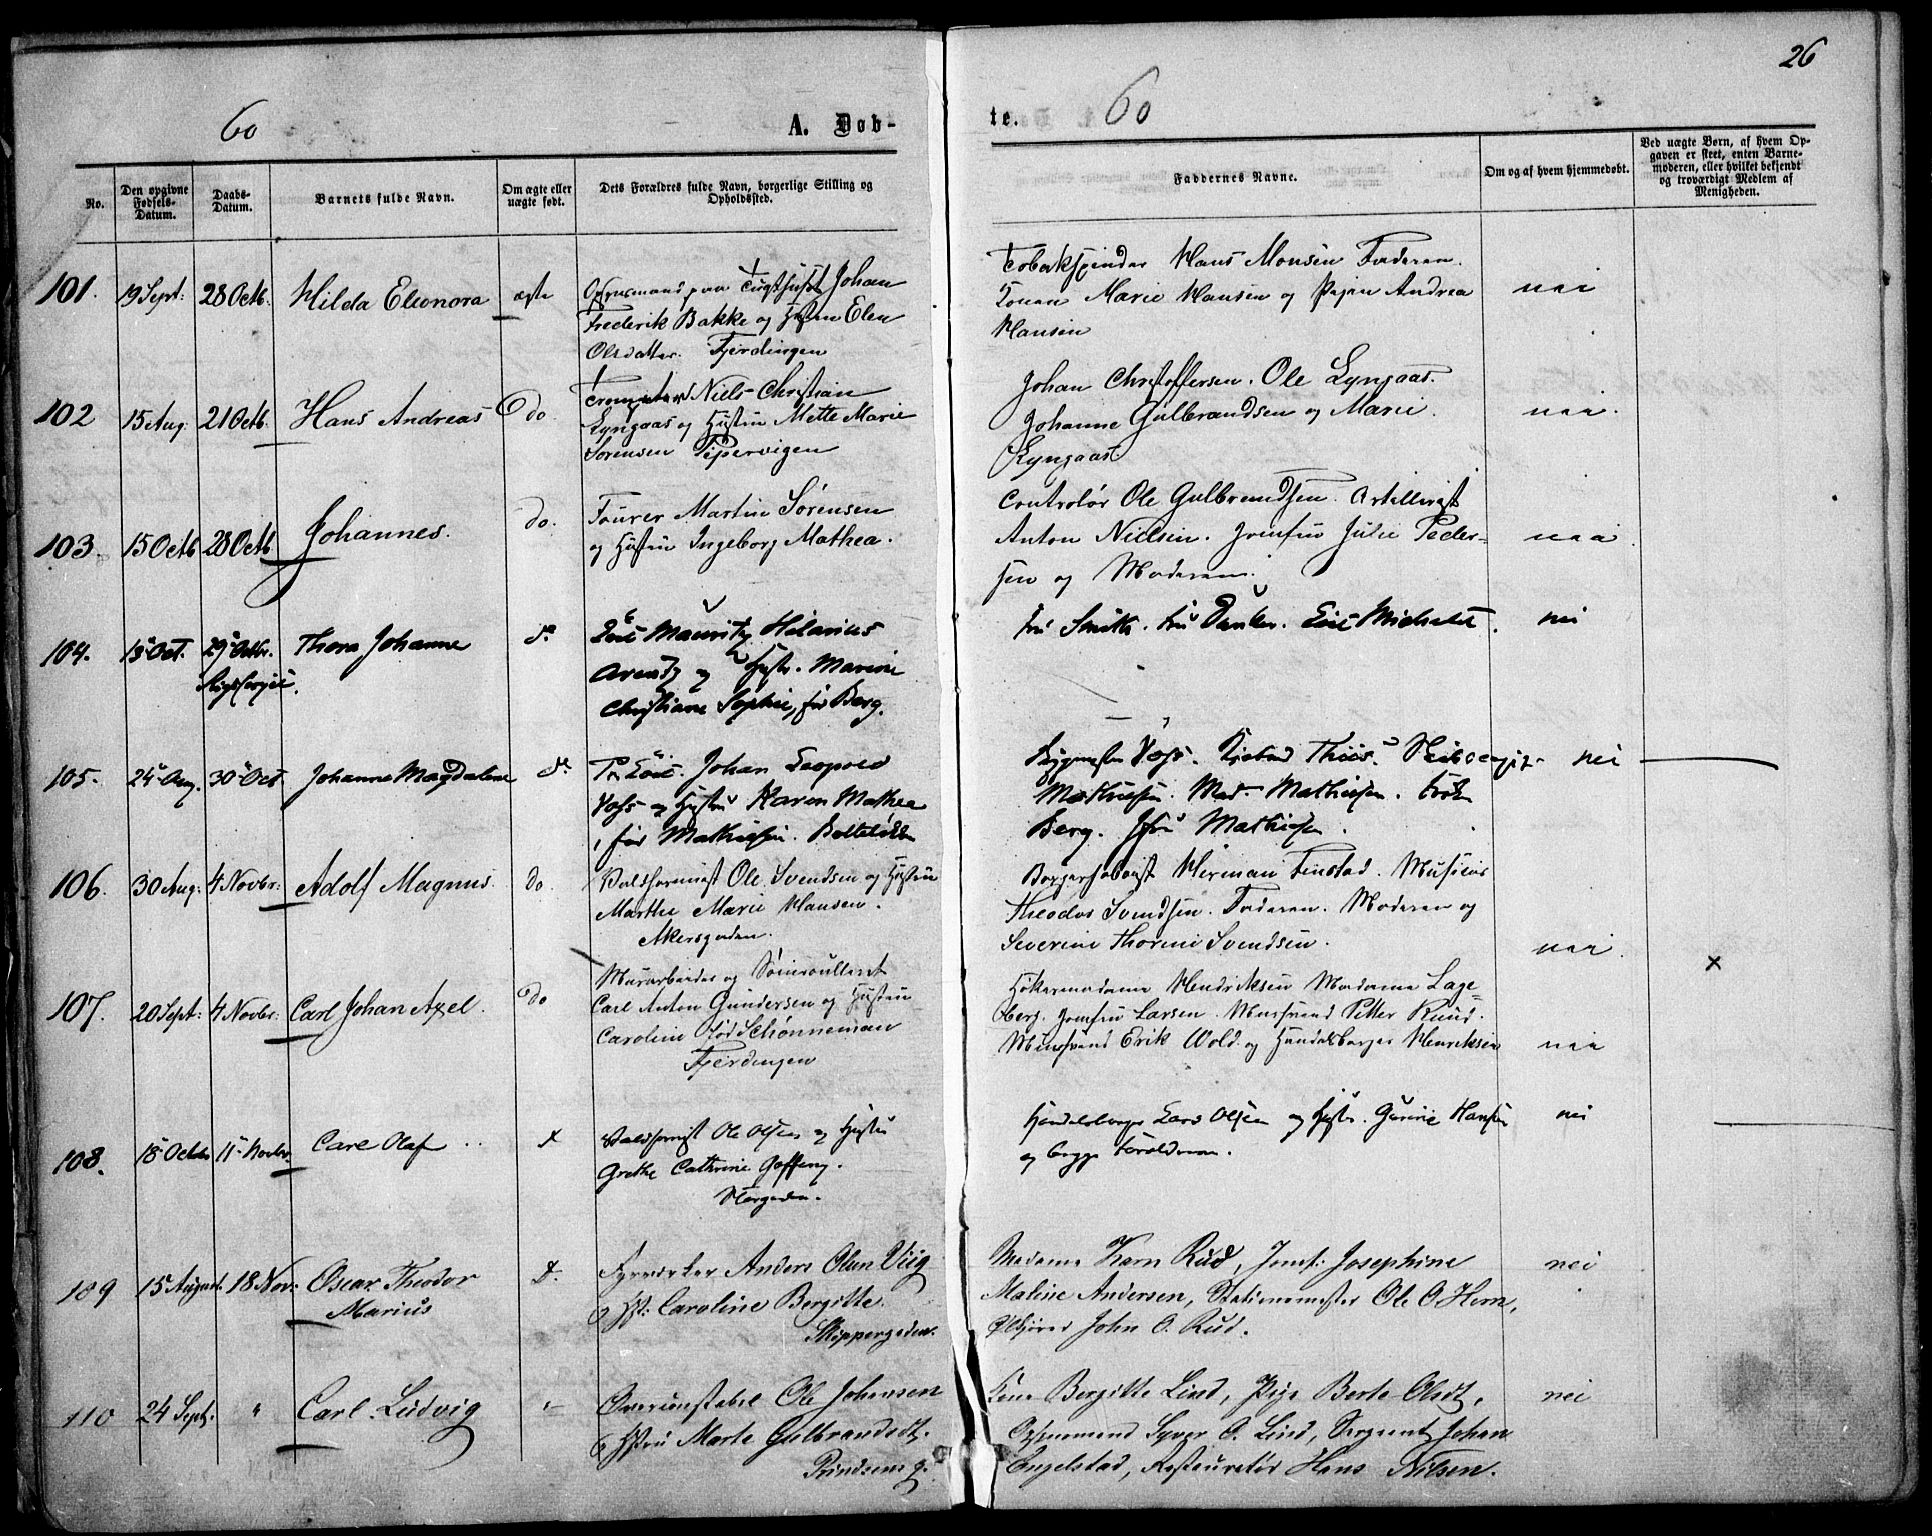 26
60
A. Døb-
te. 60
No.
Den opgivne Fødsels-Datum.
Daabs-Datum.
Barnets fulde Navn.
Om ægte eller uægte født.
Dets Forældres fulde Navn, borgerlige Stilling og Opholdssted.
Faddernes Navne.
Om og af hvem hjemmedøbt.
Ved uægte Børn, af hvem Opgaven er skeet, enten Barnemoderen, eller hvilket bekjendt og troværdigt Medlem af Menigheden.
101. 19 Sept: 28 Octb. Hilda Eleonora ægte
Opsynsmand paa Tugthuset Johan
Frederik Bakke og Hustru Elen
Olsdatter. Fjerdingen
Tobakspinder Hans Monsen Faderen.
Konen Marie Hansen og Pigen Andrea
Hansen
nei
102 15 Aug: 21 Octb. Hans Andreas do.
Trompeter Niels Christian
Lyngaas og Hustru Mette Marie
Sørensen Pipervigen
Johan Christoffersen. Ole Lyngaas.
Johanne Gulbrandsen og Marie
Lyngaas.
nei.
103. 15 Octb 28 Octb Johannes. do.
Fourer Martin Sørensen
og Hustru Ingeborg Mathea.
Controlør Ole Gulbrandsen. Artillerist
Anton Nielsen. Jomfru Julie Peder-
sen og Moderen.
nei.
104. 15 Oct. 29 Octbr. Thora Johanne do
Mauritz Hilarius
Arentz og Hustr. Marine
Christiane Sophie, før Berg.
Fru Smith. Fru . Michelet.
nei
105. 24 Aug. 30 Oct. Johanne Magdalene do
Johan Leopold
Voss og Hustru Karen Mathea
, før Mathiesen. Bolteløkken
Voss. Thiis.
Mathiesen. Mad. Mathiesen. Frøk
Berg. Jfru Mathiesen.
nei
106. 30 Aug: 4 Novbr: Adolf Magnus. do.
Ole Svendsen og Hustru
Marthe Marie Hansen.
Akersgaden.
Herman Finstad. Musicus
Theodor Svendsen. Faderen. Moderen og
Severine Thorine Svendsen.
nei.
107. 20 Sept: 4 Novbr: Carl Johan Axel. do
Murarbeider og
Carl Anton Gundersen og Hustru
Caroline født Schønneman
Fjerdingen
Høkermadame Hendriksen Madame Lage-
berg. Jomfru Larsen. Petter Ruud.
Erik Wold og Handelsborger Henriksen
nei
x
108. 18 Octbr 11 Novbr. Carl Olaf
Ole Olsen og Hustru
Grethe Cathrine
Handelsborger Lars Olsen og Hustr. Hansen
og begge Forældrene.
nei
109 15 August. 18 Nov: Oscar Theodor
Marius
Fyrvirker Anders Olsen Viig
og Hst: Caroline Bergitte.
Skippergaden.
Madame Karn Rud, Jomf: Josephine
Maline Andersen, Stationsmester Ole O. Hern,
John O. Rud.
nei
110 24 Sept. " Carl Ludvig "
Overconstabel Ole Johansen
og Hstru Marte Gulbrandsdt.
Prindsens g.
Kone Bergitte Lind, Pige Berte Olsdt,
Opsynsmand Syver O. Lind, Sergeant Johan
Engelstad, Restauratør Hans Nilsen.
nei